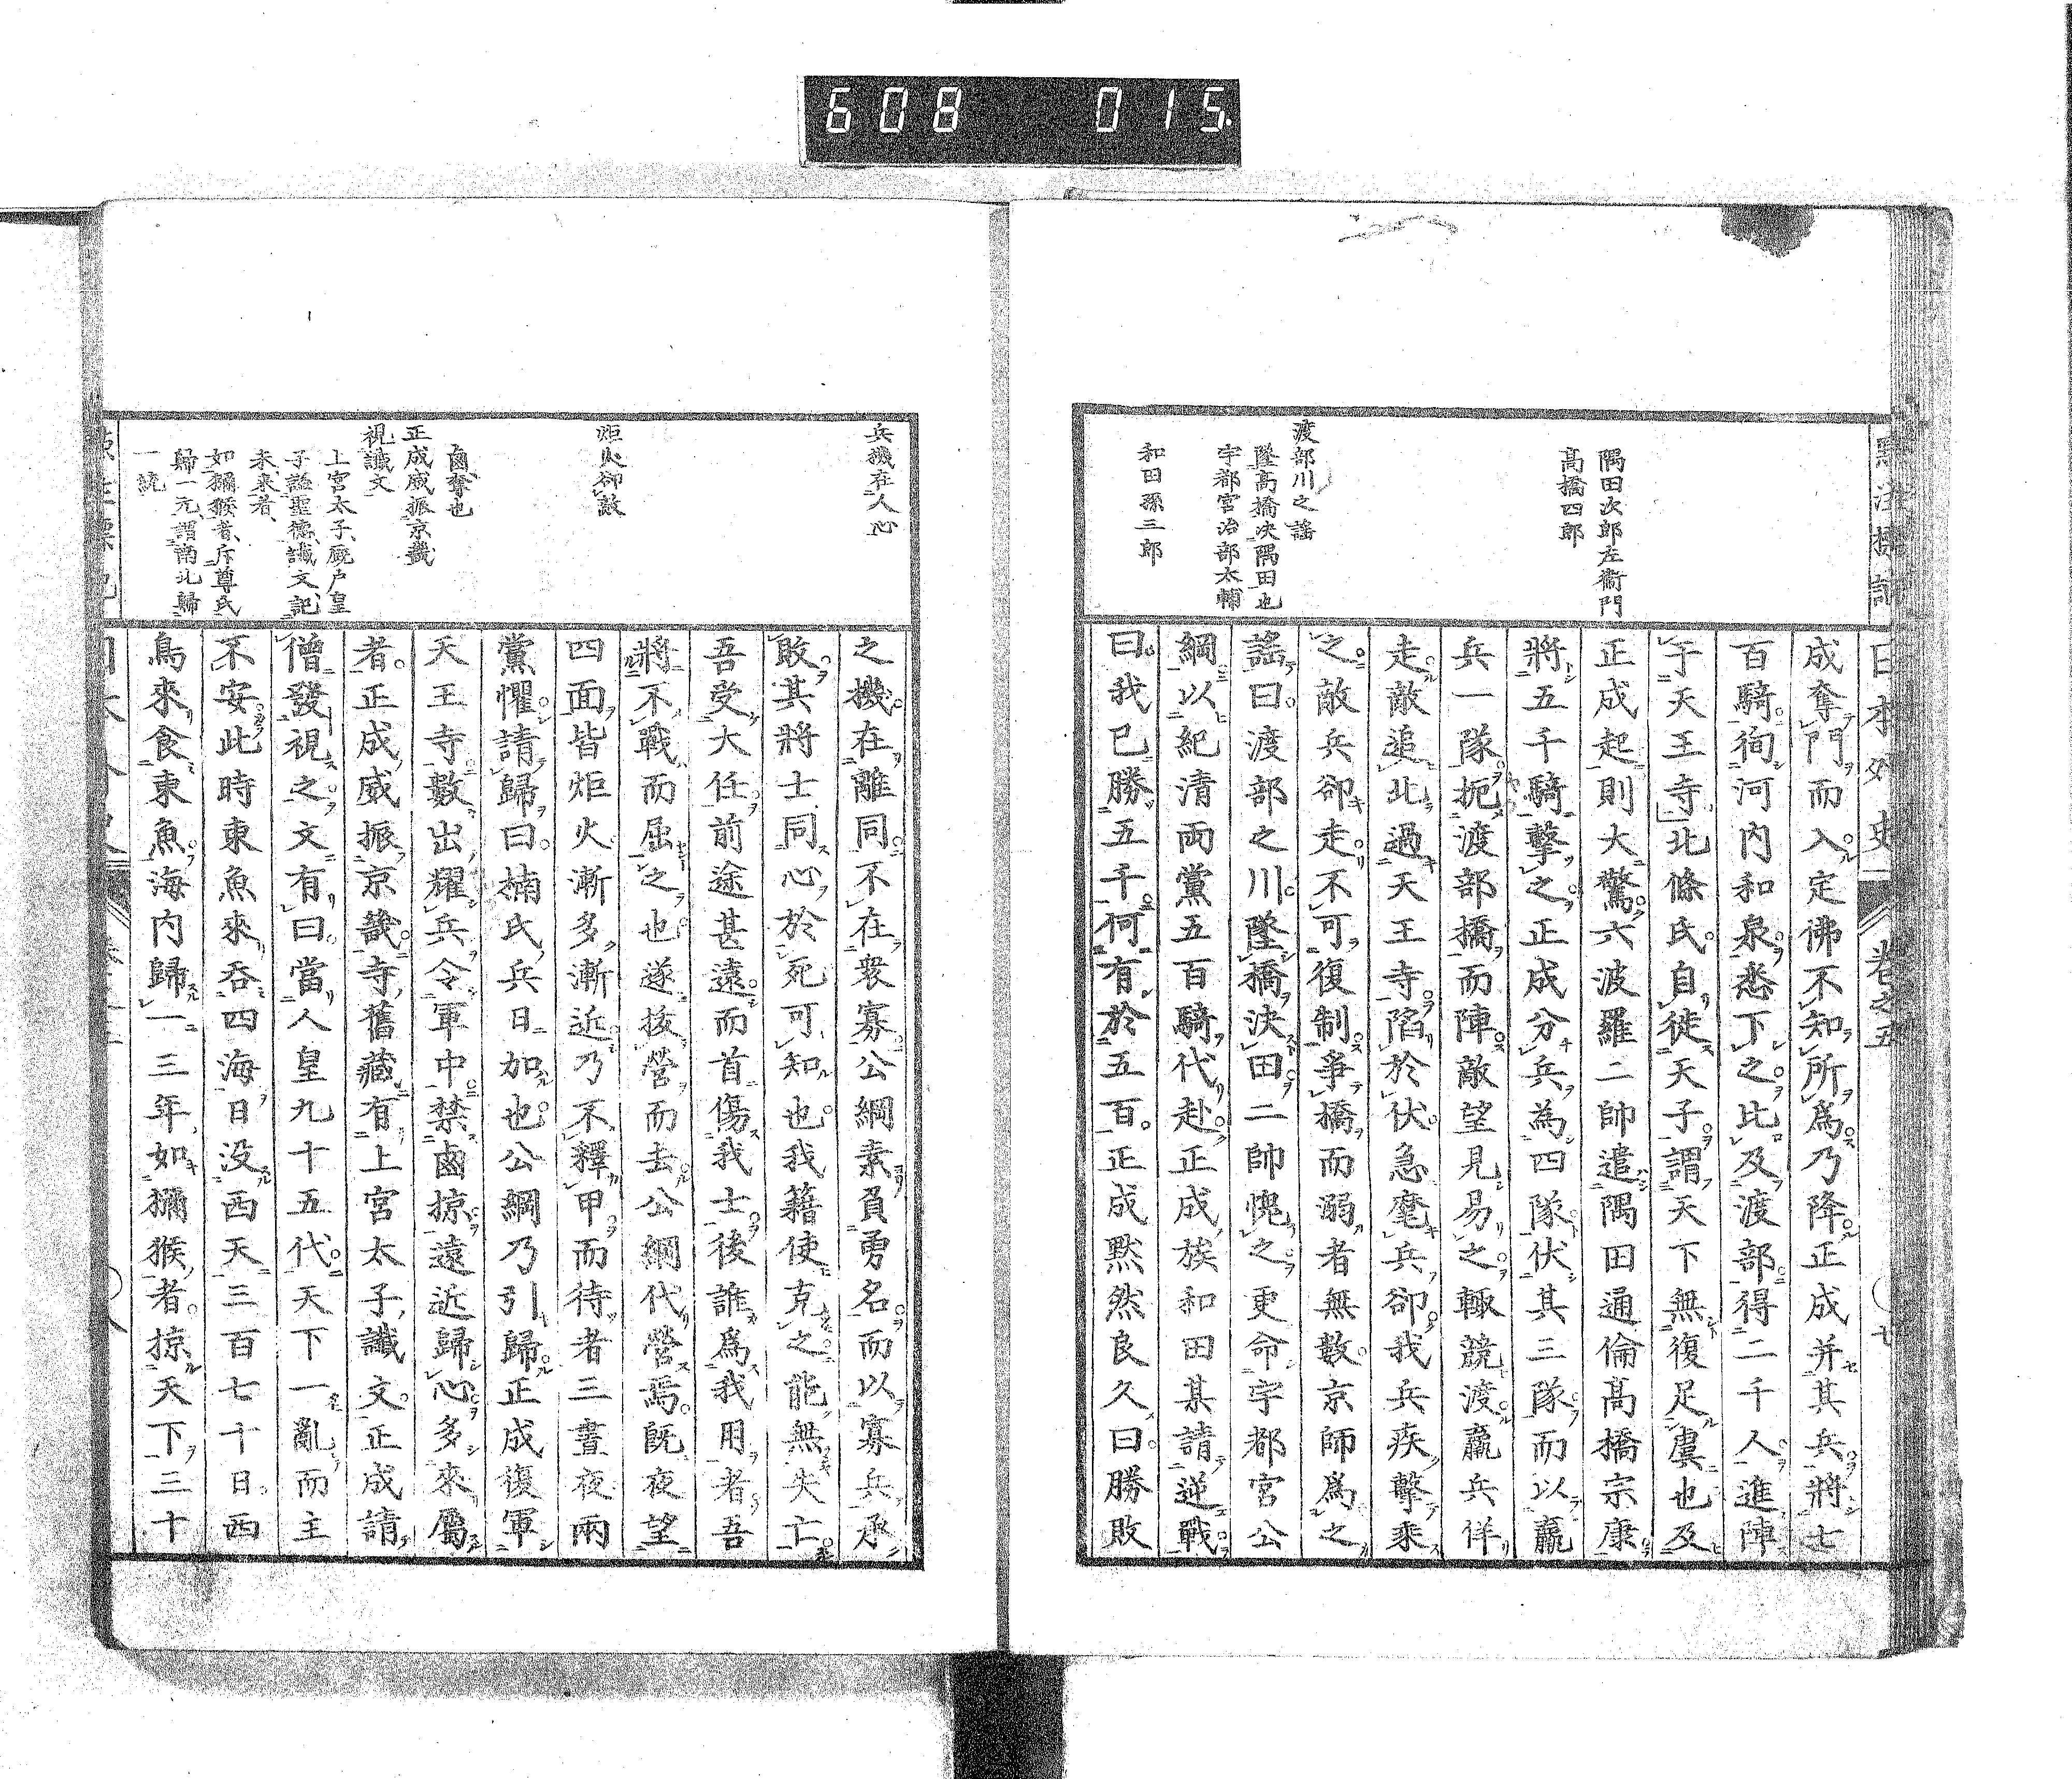 608 015
日本外史 卷之五
七
隅田次郎左衞門
高橋四郎
渡部川之謠
墜高橋決隅田也
宇都宮治部太輔
和田孫三郎
成奪門而入定佛不知所爲乃降正成并其兵將七
百騎徇河内和泉悉下之比及渡部得二千人進陣
于天王寺北條氏自徙天子謂天下無復足虞也及
正成起則大驚六波羅二帥遣隅田通倫高橋宗康
將五千騎擊之正成分兵爲四隊伏其三隊而以羸
兵一隊扼渡部橋而陣敵望見易之輙競渡羸兵佯
走敵追北過天王寺陷於伏急麾兵卻我兵疾擊乘
之敵兵卻走不可復制爭橋而溺者無數京師爲之
謠曰渡部之川墜橋決田二帥愧之更命宇都宮公
綱以紀清兩黨五百騎代赴正成族和田某請逆戰
曰我已勝五千何有於五百正成黙然良久曰勝敗
兵機在人心
炬火卻敵
鹵奪也
正成威振京畿
視讖文
上宮太子厩戸皇
子謚聖德讖文記
未來者
如獼猴者斥尊氏
歸一元謂南北歸
一統
之機在離同不在衆寡公綱素負勇名而以寡兵承
敗其將士同心於死可知也我籍使克之能無失亡
吾受大任前途甚遠而首傷我士後誰爲我用者吾
將不戰而屈之也遂拔營而去公綱代營焉既夜望
四面皆炬火漸多漸近乃不釋甲而待者三晝夜兩
黨懼請歸曰楠氏兵日加也公綱乃引歸正成復軍
天王寺數出耀兵令軍中禁鹵掠遠近歸心多來屬
者正成威振京畿寺舊藏有上宮太子讖文正成請
僧發視之文有曰當人皇九十五代天下一亂而主
不安此時東魚來吞四海日没西天三百七十日西
鳥來食東魚海内歸一三年如獼猴者掠天下三十